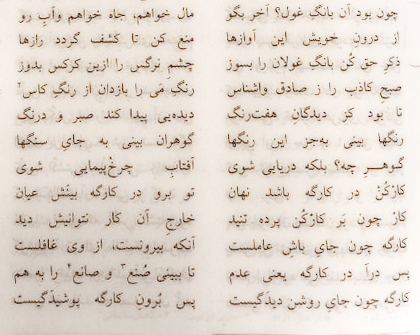 چون بود آن بانگِ غول؟ آخر بگو مال خواهم، جاه خواهم وآبِ رو
از درونِ خویش این آوازها منع کن تا کشف گردد رازها
ذکرِ حق کُن بانگِ غولان را بسوز چشمِ نرگس را ازین کرکس بدوز
صبحِ کاذب را ز صادق واشناس رنگِ مَی را بازدان از رنگِ کاس
تا بود کز دیدگانِ هفت‌رنگ دیده‌یی پیدا کند صبر و درنگ
رنگها بینی به‌جز این رنگها گوهران بینی به جایِ سنگها
گوهر چه؟ بلکه دریایی شوی آفتابِ چرخ‌پیمایی شوی
کارکُنْ در کارگه باشد نهان تو برو در کارگه بینَش عیان
کارْ چون بَر کارْکُن پرده تنید خارجِ آن کار نتوانیش دید
کارگه چون جایِ باشِ عاملست آنکه بیرونست، از وی غافلست
پس درآ در کارگه یعنی عدم تا ببینی صُنع۳ و صانع۴ را به هم
کارگه چون جایِ روشن دیدگیست پس بُرونِ کارگه پوشیدگیست